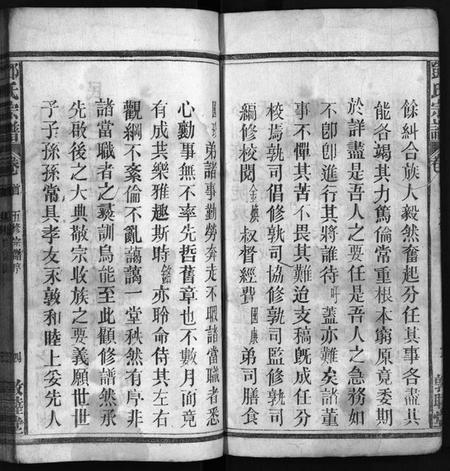 餘糾合族人毅然奮起分任其事各盡其
能各竭其力篤倫常重根本窮原竟委期
於詳盡是吾人之要任是吾人之急務如
不卽卽進行其將誰待吁蓋亦難矣諸董
事不憚其苦不畏其難迨支稿旣成任分
校璹孰司倡修孰司協修孰司監修孰司
編修校閱叔督經費國康弟司膳食
弟諸事勤勞奔走不暇諸當職者悉
心勷事無不率先哲舊章也不數月而竟
有成共樂雅趣斯時亦聆命侍其左右
觀綱不紊倫不亂藹藹一堂秩然有序非
諸當職者之彞訓烏能至此顧修譜然承
先啟後之大典敬宗收族之要義願世世
子子孫孫常具孝友永敦和睦上妥先人
氏宗譜
卷首
五修宗譜序
四